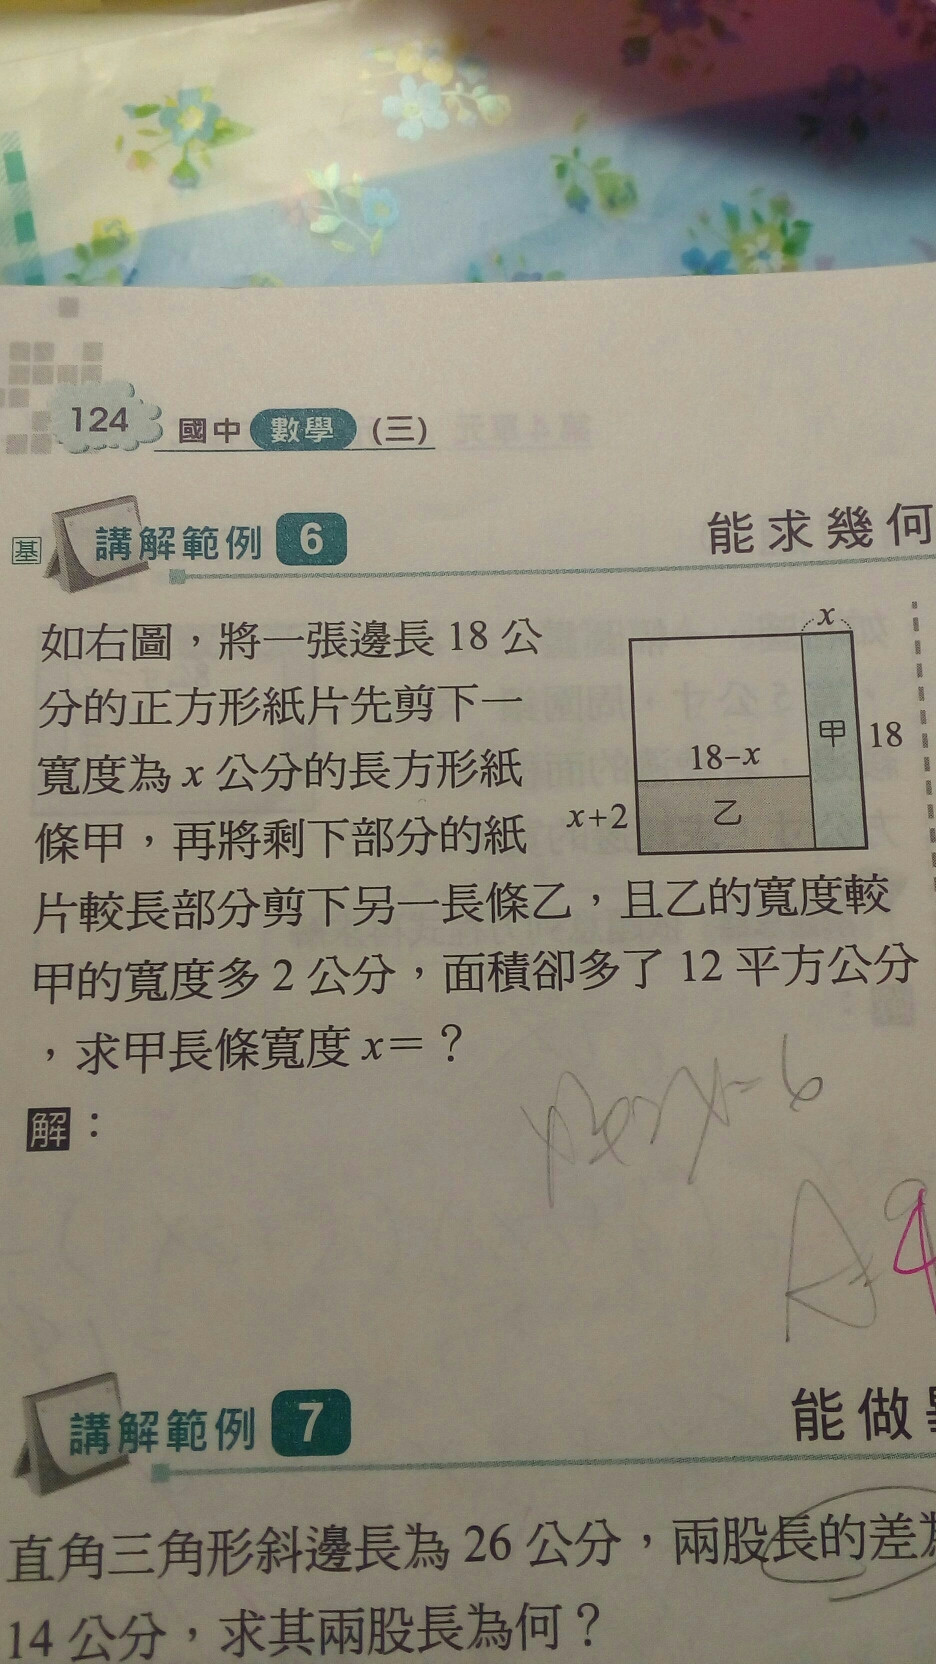 124 國中 數學 (三)
基 講解範例 6 能求幾何
如右圖，將一張邊長 18 公
分的正方形紙片先剪下一
寬度為 x 公分的長方形紙
條甲，再將剩下部分的紙
片較長部分剪下另一長條乙，且乙的寬度較
甲的寬度多 2 公分，面積卻多了 12 平方公分
，求甲長條寬度 x＝？
x
甲
18
18-x
x+2
乙
解：
講解範例 7 能做
直角三角形斜邊長為 26 公分，兩股長的差為
14 公分，求其兩股長為何？